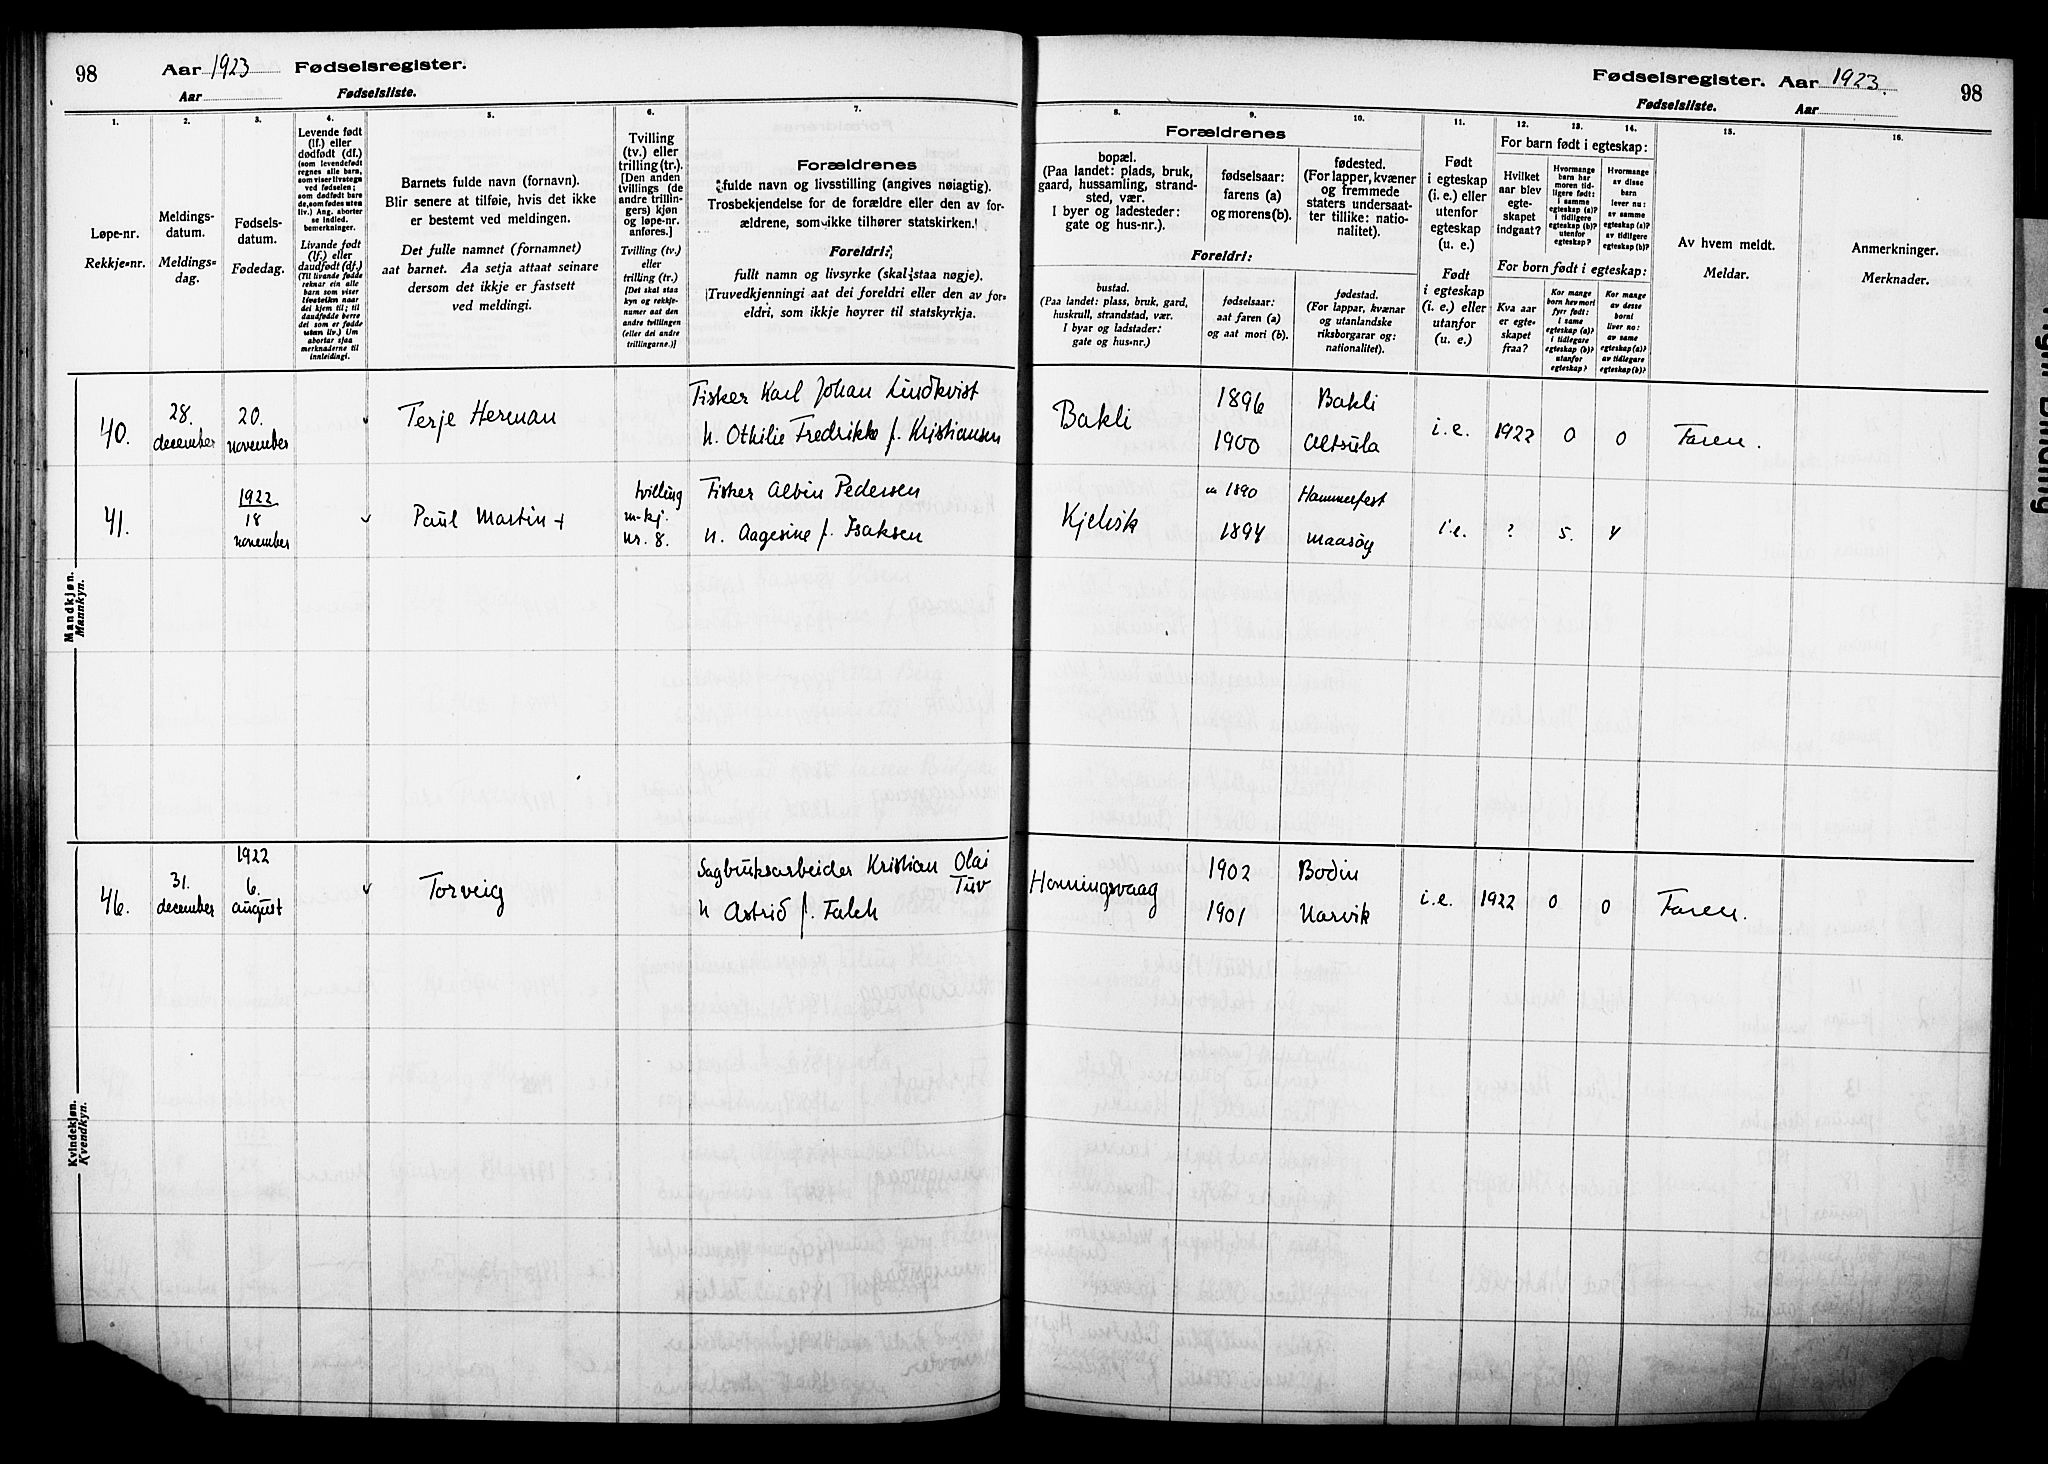 98
Aar 1923 Fødselsregister.
Aar
Fødselsliste.
1.
2.
3.
4.
5.
6.
7.
Løpe-nr.
Rekkje-nr.
Meldings-
datum.
Meldings-
dag.
Fødsels-
datum.
Fødedag.
Levende født
(lf.) eller
dødfødt (df.)
(som levendefødt
regnes alle barn,
som viser livstegn
ved fødselen;
som dødfødt barn
de, som fødes uten
liv.) Ang. aborter
se indled.
bemerkninger.
Livande født
(lf.) eller
daudfødt (df.)
(Til livande fødde
reknar ein alle
barn som viser
livsteikn naar
dei kjem til; til
daudfødde berre
dei som er fødde
utan liv.) Um
abortar sjaa
merknaderne til
innleidingi.
Barnets fulde navn (fornavn).
Blir senere at tilføie, hvis det ikke
er bestemt ved meldingen.
Det fulle namnet (fornamnet)
aat barnet. Aa setja attaat seinare
dersom det ikkje er fastsett
ved meldingi.
Tvilling
(tv.) eller
trilling (tr.).
[Den anden
tvillings (de
andre trillin-
gers) kjøn
og løpe-nr.
anføres.]
Tvilling (tv.)
eller
trilling (tr.)
[Det skal staa
kyn og rekkje-
numer aat den
andre tvillingen
(eller dei andre
trillingarne.)]
Forældrenes
fulde navn og livsstilling (angives nøiagtig).
Trosbekjendelse for de forældre eller den av for-
ældrene, som ikke tilhører statskirken.
Foreldri:
fullt namn og livsyrke (skal staa nøgje).
Truvedkjenningi aat dei foreldri eller den av for-
eldri, som ikkje høyrer til statskyrkja.
Mandkjøn.
Mannkyn.
40.
28.
december
20.
november
Terje Herman
Fisker Karl Johan Lindkvist
h. Othilie Fredrikke f. Kristiansen
41.
1922
18
november
Paul Martin +
tvilling
m-kj.
nr. 8.
Fisker Albin Pedersen
h. Aagesine f. Isaksen
Kvindekjøn.
Kvendkyn.
46.
31.
december
1922
6.
august
Torveig
Sagbruksarbeider Kristian Olai
Tuv
h Astrid f. Falch
Fødselsregister. Aar 1923.
98
Fødselsliste.
Aar
8.
9.
10.
11.
12.
13.
14.
15.
16.
Forældrenes
bopæl.
(Paa landet: plads, bruk,
gaard, hussamling, strand-
sted, vær.
I byer og ladesteder:
gate og hus-nr.).
fødselsaar:
farens (a)
og morens (b).
fødested.
(For lapper, kvæner
og fremmede
staters undersaat-
ter tillike: natio-
nalitet).
Foreldri:
bustad.
(Paa landet: plass, bruk, gard,
huskrull, strandstad, vær.
I byar og ladstader:
gate og hus-nr.)
fødselsaar:
aat faren (a)
og aat mori (b).
fødestad.
(For lappar, kvænar
og utanlandske
riksborgarar og:
nationalitet).
Født
i egteskap
(i. e.) eller
utenfor
egteskap
(u. e.)
Født
i egteskap
(i. e.) eller
utanfor
(u. e.)
For barn født i egteskap:
Hvilket
aar blev
egte-
skapet
indgaat?
Hvormange
barn har
moren tid-
ligere født:
i samme
egteskap (a)?
i tidligere
egteskap (b)?
utenfor
egteskap?
Hvormange
av disse
barn
lever nu:
av samme
egteskap (a)?
av tidligere
egteskap (b)?
For born født i egteskap:
Kva aar
er egte-
skapet
fraa?
Kor mange
born hev mori
fyrr født:
i same
egteskap (a)?
i tidlegare
egteskap (b)?
utanfor
egteskap?
Kor mange
av desse
borni
liver no:
av same
egteskap (a)?
av tidlegare
egteskap (b)?
Av hvem meldt.
Meldar.
Anmerkninger.
Merknader.
Bakli
1896
1900
Bakli
Altsula
i.e.
1922
0
0
Faren.
Kjelvik
1890
1894
Hammerfest
Maasøy
i.e.
?
5.
4
Honningsvaag
1902
1901
Bodin
Narvik
i.e.
1922
0
0
Faren.